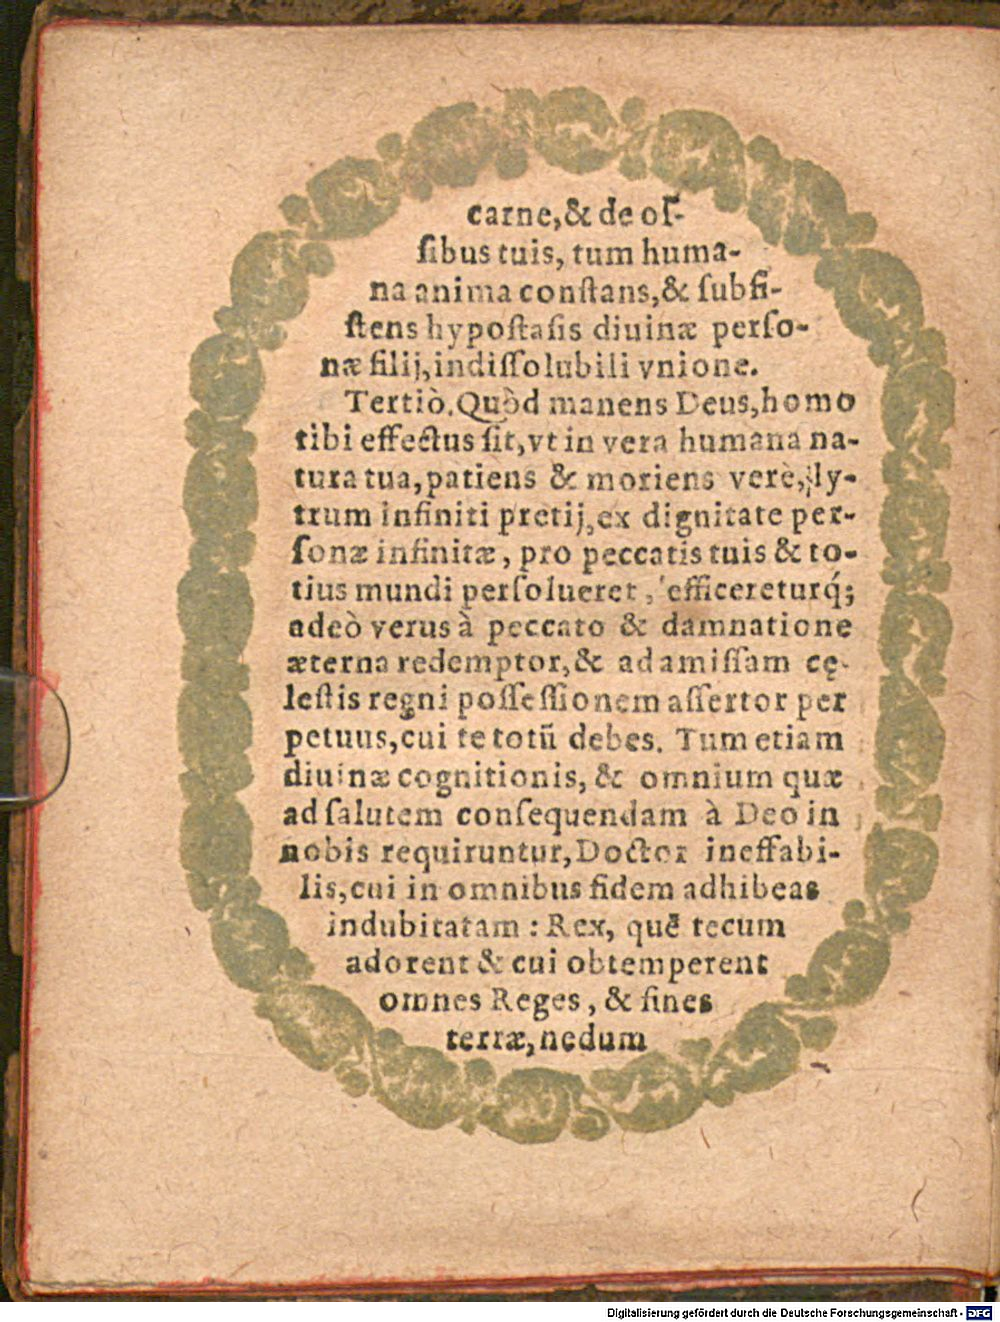 carne,& de oſ-
ſibus tuis, tum huma-
na anima conſtans,& ſubſi-
ſtens hypoſtaſis diuinæ perſo-
næ filij,indiſſolubili vnione.
Tertiò. Quòd manens Deus,homo
tibi effectus ſit,vt in vera humana na-
tura tua,patiens & moriens verè, ly-
trum infiniti pretij,ex dignitate per-
ſonæ infinitæ, pro peccatis tuis & to-
tius mundi perſolueret, efficereturq́;
adeò verus à peccato & damnatione
æterna redemptor,& ad amiſſam cę-
leſtis regni poſſeſſionem aſſertor per
petuus,cui te totũ debes. Tum etiam
diuinæ cognitionis, & omnium quæ
ad ſalutem conſequendam à Deo in
nobis requiruntur,Doctor ineffabi-
lis,cui in omnibus fidem adhibeas
indubitatam : Rex, quẽ tecum
adorent & cui obtemperent
omnes Reges, & fines
terræ,nedum
Digitalisierung gefördert durch die Deutsche Forschungsgemeinschaft - DFG